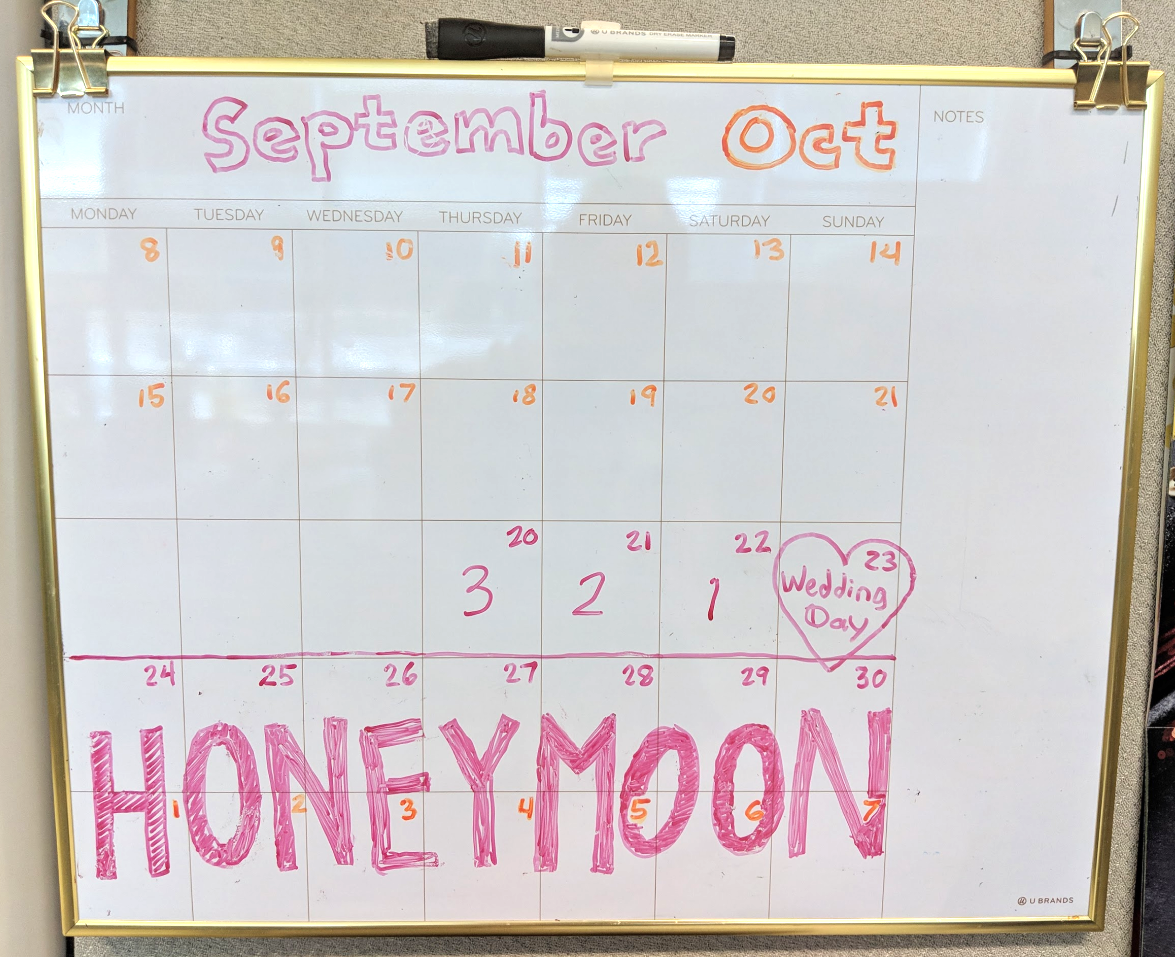 U BRANDS DRY ERASE MARKER
MONTH
September Oct
NOTES
MONDAY TUESDAY WEDNESDAY THURSDAY FRIDAY SATURDAY SUNDAY
8 9 10 11 12 13 14
15 16 17 18 19 20 21
20 21 22 23
3 2 1 Wedding
Day
24 25 26 27 28 29 30
HONEYMOON
1 2 3 4 5 6 7
U BRANDS